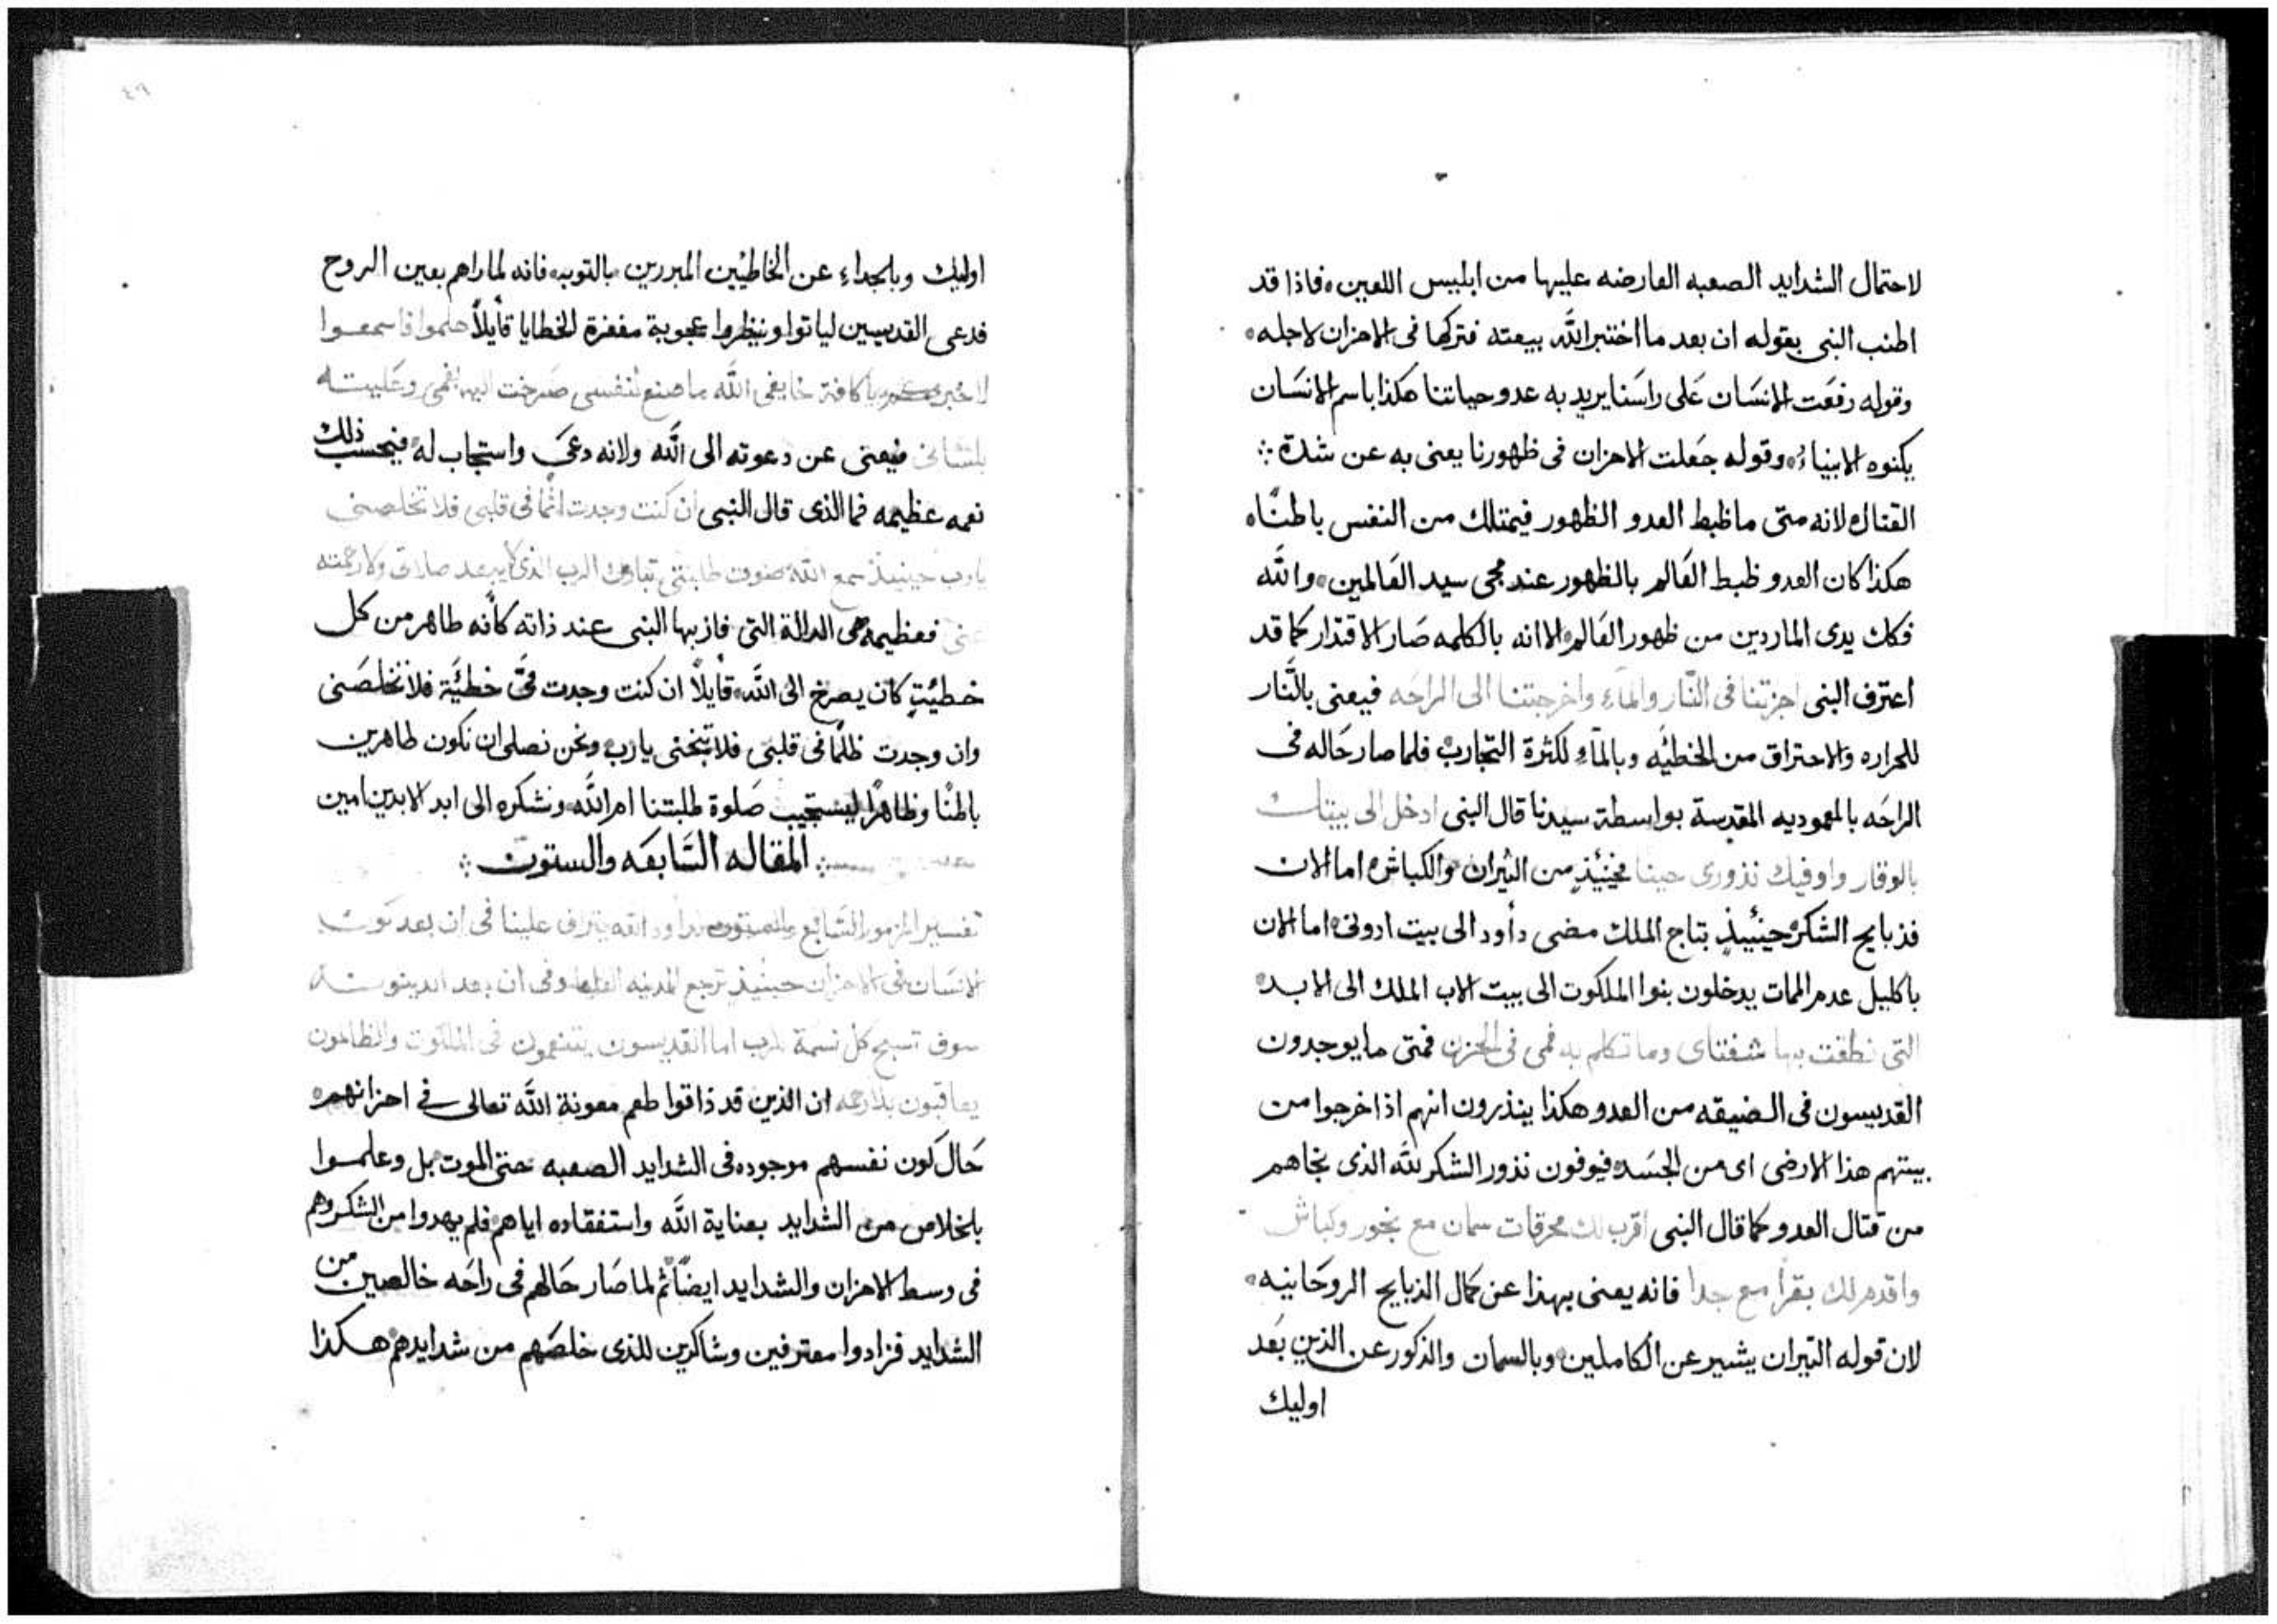 لاحتمال الشدايد الصعبه العارضه عليها من ابليس اللعين ه فاذا قد
اطنب النبى بقوله ان بعد ما اختبر الله بيعته فتركها فى الاحزان لاجله ه
وقوله رفعت الانسان على راسنا يريد به عدو حياتنا هكذا باسم الانسان
يكنوه الابنياء ه وقوله جعلت الاحزان فى ظهورنا يعنى به عن شدة ⁘
القتال ه لانه متى ما ظبط العدو الظهور فيمتلك من النفس باطنًا ه
هكذا كان العدو ظبط العالم بالظهور عند مجى سيد العالمين ه والله
فكك يدى الماردين من ظهور العالم ه الا انه بالكلمه صار الاقتدار كما قد
اعترف النبى اجزتنا فى النار والماء واخرجتنا الى الراحه فيعنى بالنار
للحراره والاحتراق من الخطيئه وبالماء لكثرة التجارب ه فلما صار حاله فى
الراحه بالمعموديه المقدسة بواسطة سيدنا قال النبى ادخل الى بيتك
بالوقار واوفيك نذورى حينا فحينئذٍ من الثيران والكباش ه اما الان
فذبايح الشكر ه حينئيذٍ بتاج الملك مضى دأود الى بيت ادونى ه اما الان
باكليل عدم الممات يدخلون بنوا الملكوت الى بيت الاب الملك الى الابد ه
التى نطقت بها شفتاى وما تكلم به فمى فى الحزن فمتى ما يوجدون
القديسون فى الضيقه من العدو هكذا ينذرون انهم اذا خرجوا من
بيتهم هذا الارضى اى من الجسد ه فيوفون نذور الشكر لله الذى نجاهم
من قتال العدو كما قال النبى اقرب لك محرقات سمان مع بخور وكباش
واقدم لك بقرًا مع جدا فانه يعنى بهذا عن كمال الذبايح الروحانيه ه
لان قوله الثيران يشير عن الكاملين ه وبالسمان والذكور عن الذين بعد
اوليك
٤٩
اوليك وبالجداء عن الخاطيين المبررين بالتوبه ه فانه لما راهم بعين الروح
فدعى القديسين لياتوا وينظروا عجوبة مغفرة الخطايا قأيلاً هلموا فاسمعوا
لاخبركم يا كافة خايفى الله ما صنع لنفسى صرخت اليه بفمى وعليته
بلسانى فيعنى عن دعوته الى الله ولانه دعى واستجاب له ه فيحسب ذلك
نعمه عظيمه فما الذى قال النبى ان كنت وجدت اثمًا فى قلبى فلا تخلصنى
يارب حينيذ سمع الله صوت طلبتى تبارك الرب الذى لا يبعد صلاتى ولا رحمته
عنى فعظيمة هى الدالة التى فاز بها النبى عند ذاته كأنه طاهر من كل
خطيئةٍ كان يصرخ الى الله ه قأيلاً ان كنت وجدت فىَّ خطئيَة فلا تخلصنى
وان وجدت ظلمًا فى قلبى فلا تنجنى يارب ه ونحن نصلى ان نكون طاهرين
باطنًا وظاهرًا ليستجيب صلوة طلبتنا ام الله ونشكره الى ابد الابدين امين
⁘ المقاله السابعه والستون ⁘
تفسير المزمور السابع والستون لداود الله يتراف علينا فى ان بعد كون
الانسان فى الاحزان حينيذ ترجع المدينه وفى ان بعد الدينونة
سوف تسبح كل نسمة للرب اما القديسون يتنعمون فى الملكوت والظالمون
يعاقبون بلا رحمه ان الذين قد ذاقوا طعم معونة الله تعالى فى احزانهم ه
حال كون نفسهم موجوده فى الشدايد الصعبه حتى الموت بل وعلموا
بالخلاص من الشدايد بعناية الله واستفقاده اياهم ه فلم يهدوا من الشكر وهم
فى وسط الاحزان والشدايد ايضًا ثم لما صار حالهم فى راحه خالصين من
الشدايد فزادوا معترفين وشاكرين للذى خلصهم من شدايدهم ه هكذا